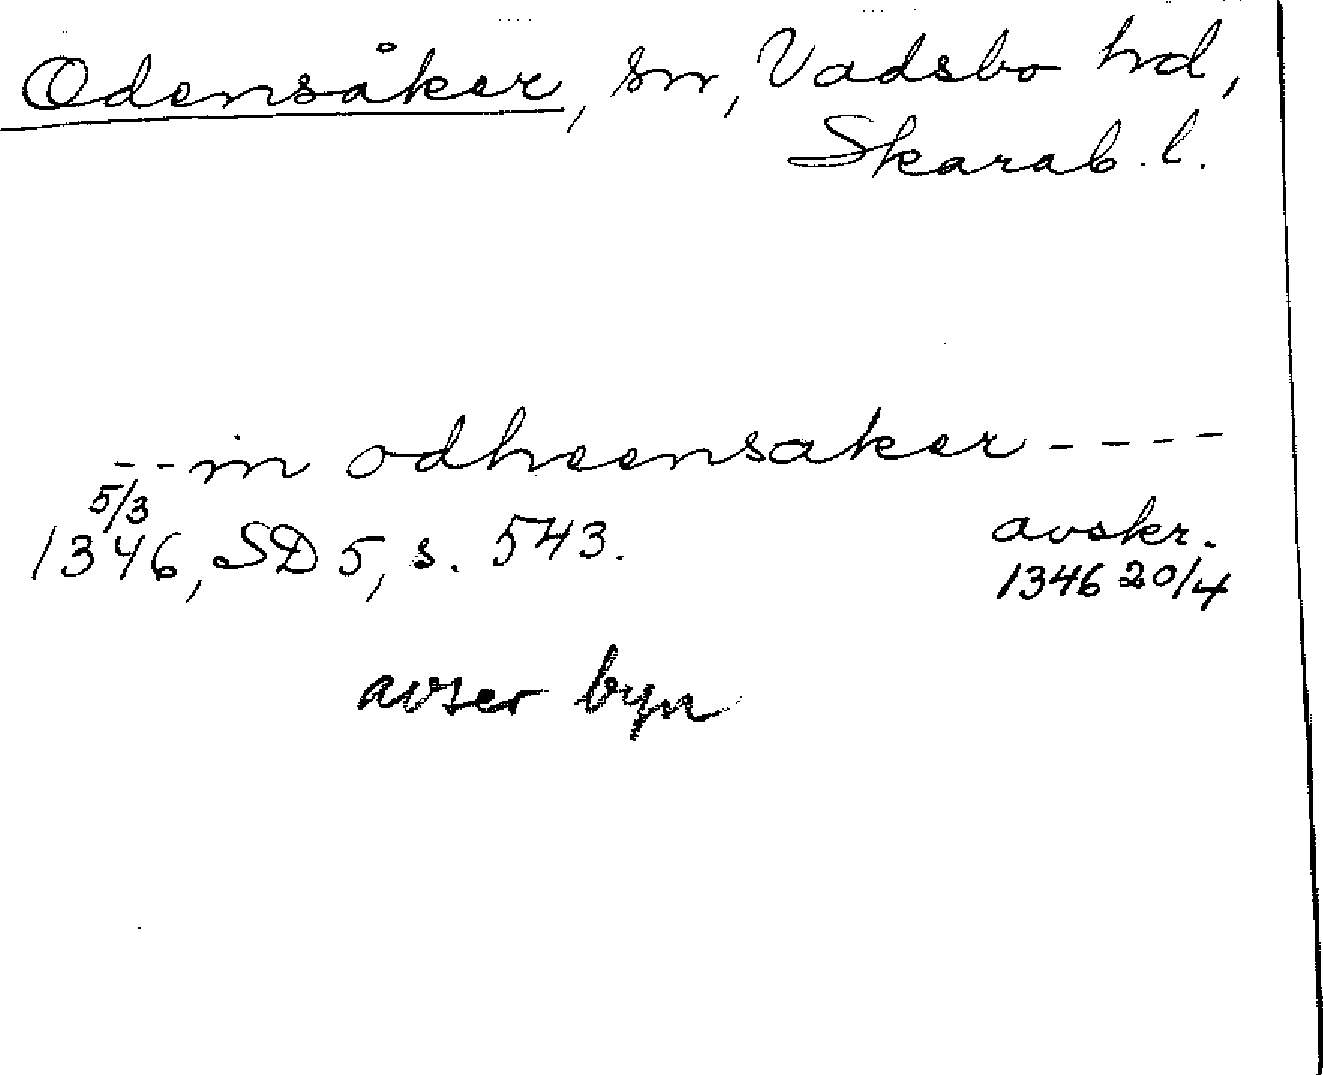 Odensåker, sn, Vadsbo hd,
Skarab. l.
-- in odheensaker ----
5/3
1346, SD 5, s. 543.
avskr.
1346 20/4
avser byn